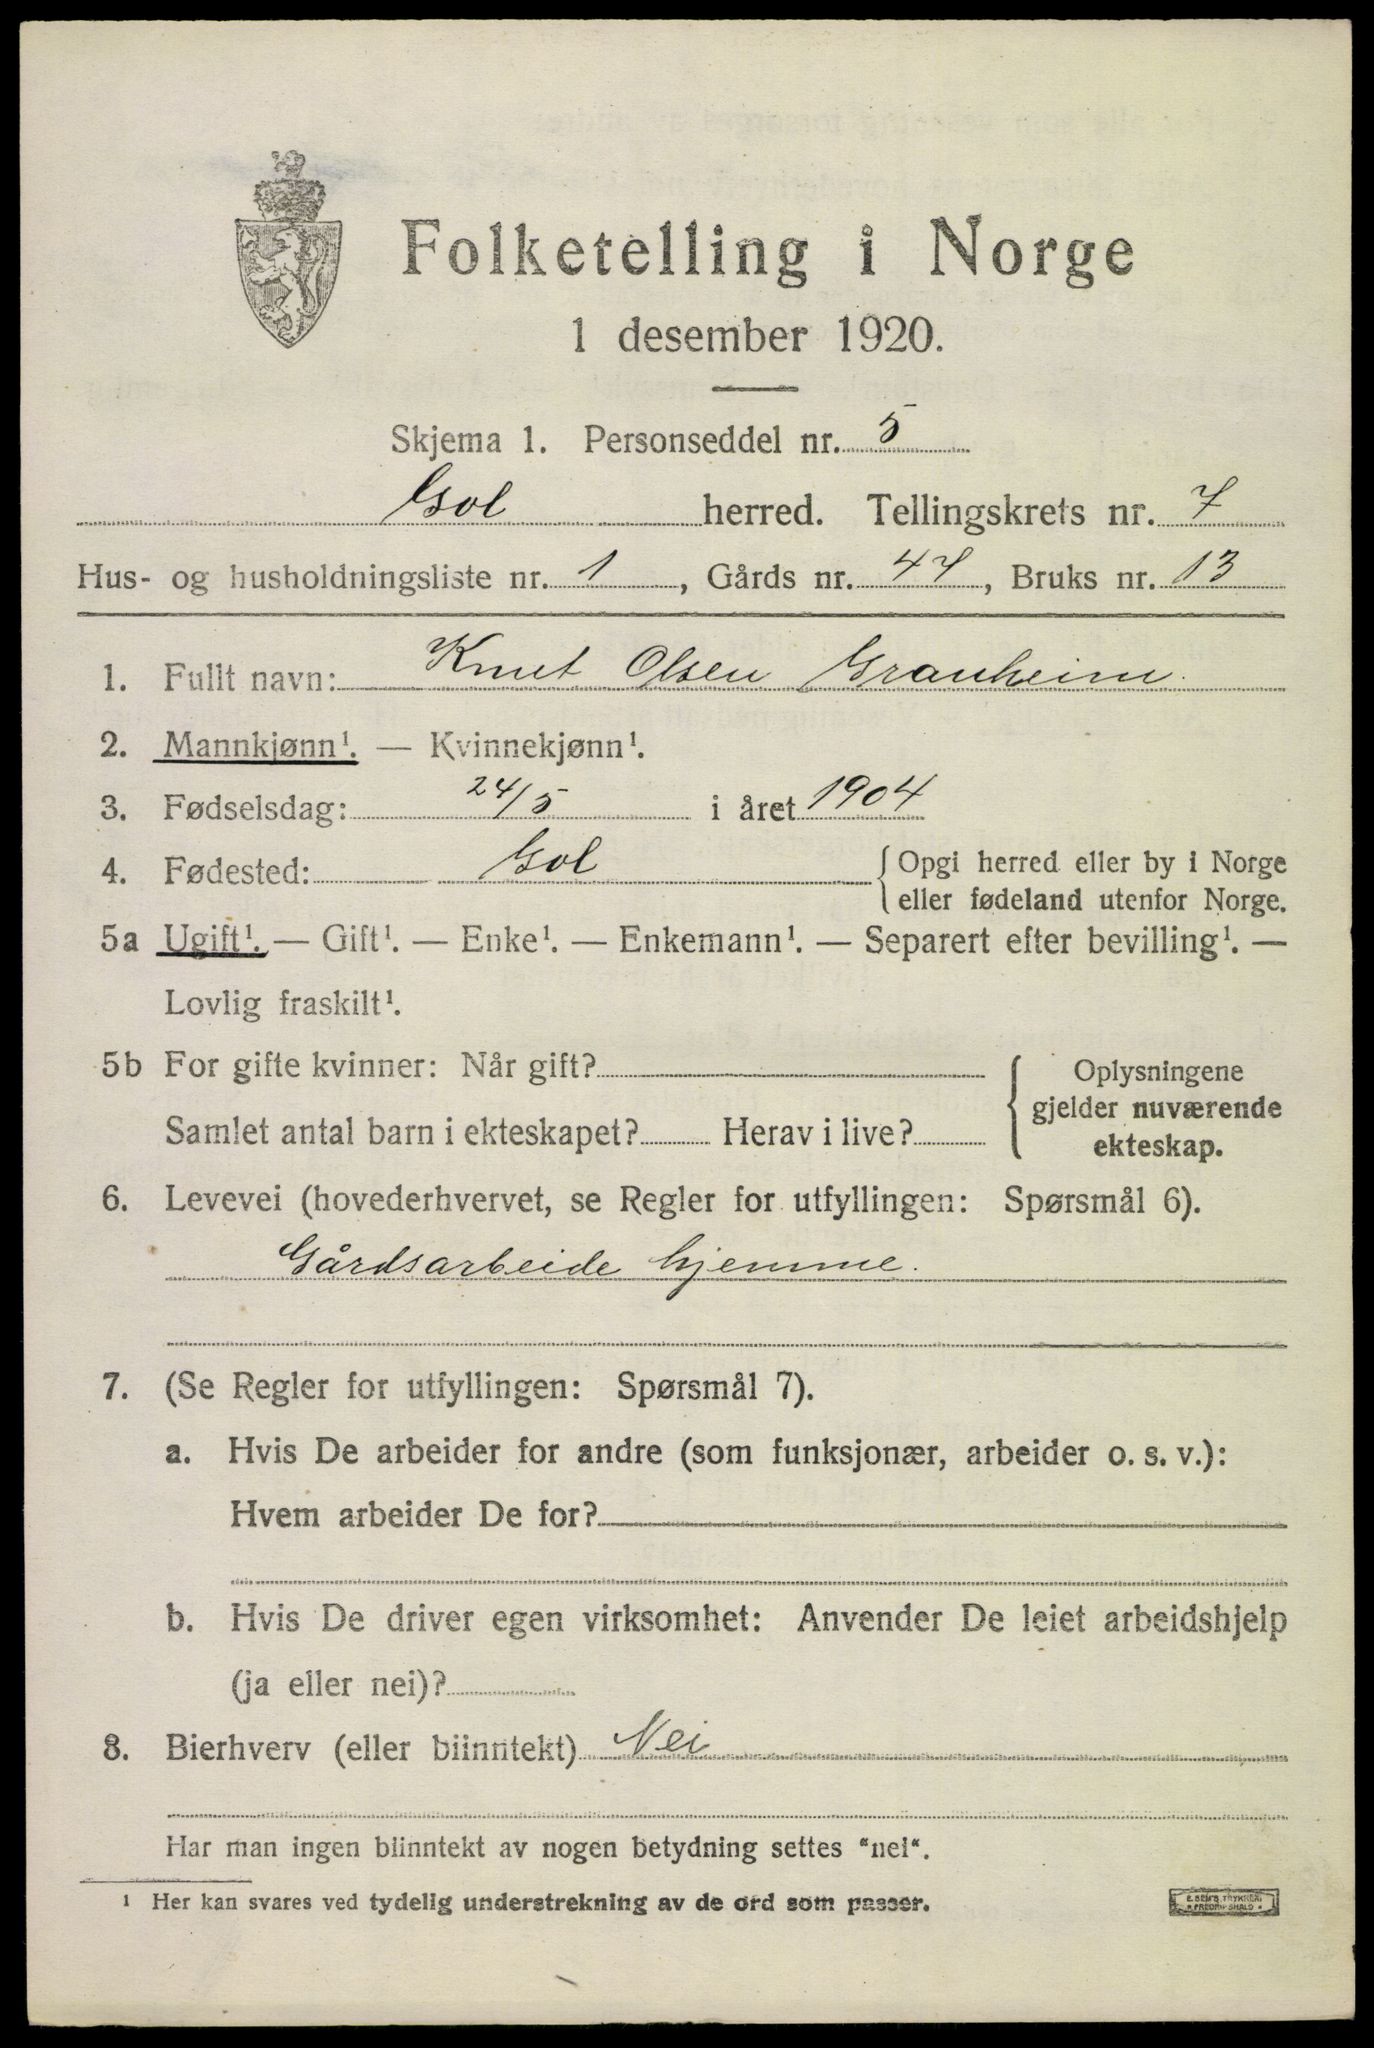 Folketelling i Norge
1 desember 1920.
Skjema 1. Personseddel nr. 5
Gol herred. Tellingskrets nr. 7
Hus- og husholdningsliste nr. 1, Gårds nr. 47, Bruks nr. 13
1. Fullt navn: Knut Olsen Granheim.
2. Mannkjønn¹. — Kvinnekjønn¹.
3. Fødselsdag: 24/5 i året 1904
4. Fødested: Gol { Opgi herred eller by i Norge
eller fødeland utenfor Norge.
5a Ugift¹. — Gift¹. — Enke¹. — Enkemann¹. — Separert efter bevilling¹. —
Lovlig fraskilt¹.
5b For gifte kvinner: Når gift?
Samlet antal barn i ekteskapet? Herav i live?
Oplysningene
gjelder nuværende
ekteskap.
6. Levevei (hovederhvervet, se Regler for utfyllingen: Spørsmål 6).
Gårdsarbeide hjemme.
7. (Se Regler for utfyllingen: Spørsmål 7).
a. Hvis De arbeider for andre (som funksjonær, arbeider o. s. v.):
Hvem arbeider De for?
b. Hvis De driver egen virksomhet: Anvender De leiet arbeidshjelp
(ja eller nei)?
8. Bierhverv (eller biinntekt) Nei
Har man ingen biinntekt av nogen betydning settes "nei".
¹ Her kan svares ved tydelig understrekning av de ord som passer.